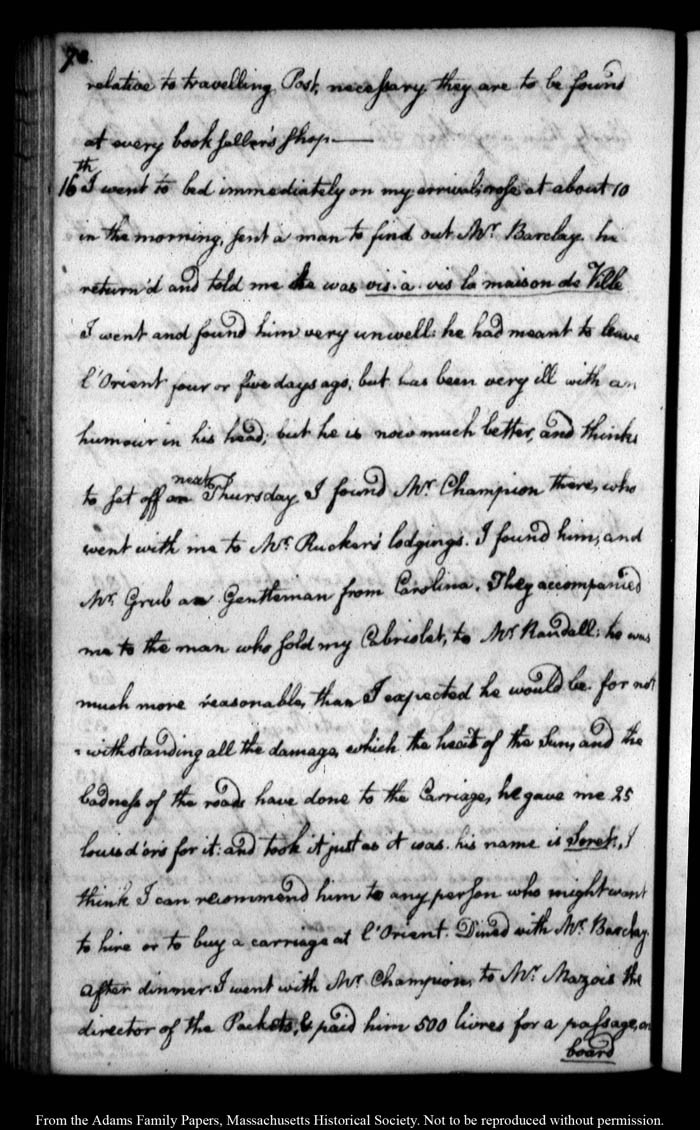 70.
relative to travelling Post, necessary they are to be found
at every bookseller's shop.—
16th I went to bed immediately on my arrival: rose at about 10
in the morning, sent a man to find out Mr. Barclay. he
return'd and told me he was vis. à. vis la maison de Ville
I went and found him very unwell: he had meant to leave
l'Orient four or five days ago; but has been very ill with an
humour in his head; but he is now much better, and thinks
next
to set off on Thursday. I found Mr. Champion there, who
went with me to Mr. Rucker's lodgings. I found him, and
Mr. Grub a Gentleman from Carolina. They accompanied
me to the man who sold my Cabriolet, to Mr. Randall: he was
much more reasonable, than I expected he would be. for not
=withstanding all the damage, which the heat of the Sun, and the
badness of the roads have done to the Carriage, he gave me 25
louis d'ors for it: and took it just as it was. his name is Soret., I
think I can recommend him to any person who might want
to hire or to buy a carriage at l'Orient. Dined with Mr. Barclay.
after dinner I went with Mr. Champion, to Mr. Mazois the
director of the Packets, & paid him 500 livres for a passage, on
board
From the Adams Family Papers, Massachusetts Historical Society. Not to be reproduced without permission.